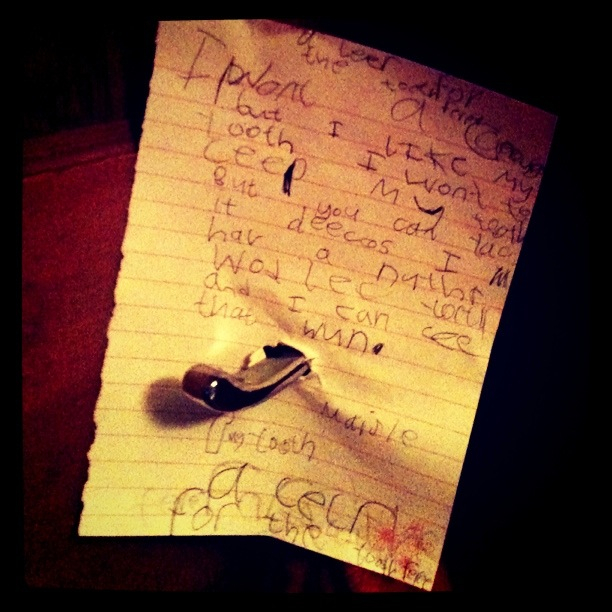 a leer for
the toothfire
I wont a
but I LIKE my
tooth I wont to
ceep my tooth
But you can tac
it deecos I
hav a nuthr
wobLec tooth
and I can cee
that wun.
Maisie
my tooth
a
for the tooth